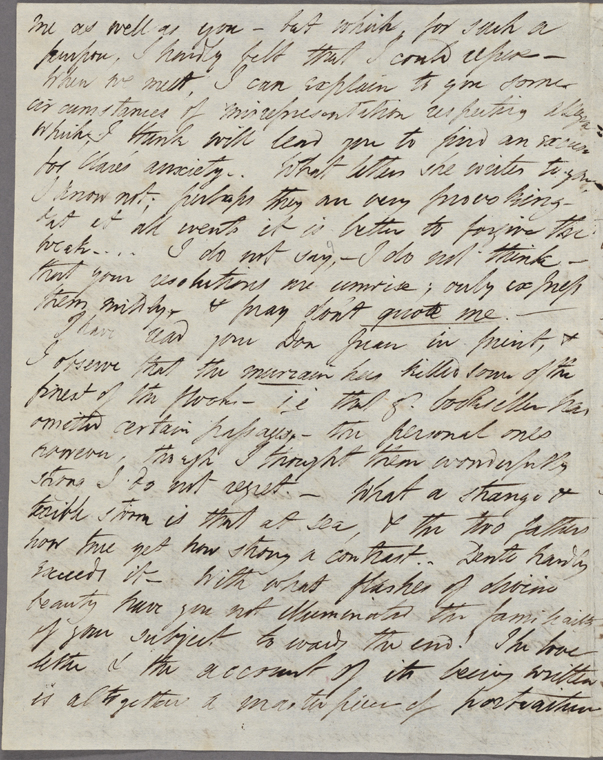 me as well as you – but which, for such a
purpose, I hardly felt that I could refuse –
When we meet, I can explain to you some
circumstances of misrepresentation respecting Allegra
which I think will lead you to find an excuse
for Clares anxiety.. What letters she writes to you
I know not; perhaps they are very provoking–
but at all events it is better to forgive the
weak.... I do not say,–I do not think–
that your resolutions are unwise; only express
them mildly, & pray dont quote me. –
I have read your Don Juan in print, &
I observe that the murrain has killed some of the
finest of the flock – i.e that bookseller has
omitted certain passages – the personal ones
however, though I thought them wonderfully
strong I do not regret. – What a strange &
terrible storm is that at sea, & the two fathers
how true yet how strong a contrast.. Dante hardly
exceeds it – With what flashes of divine
beauty have you not illuminated the familiarity
of your subject towards the end! The love
letter & the account of its being written
is altogether a masterpiece of portraiture